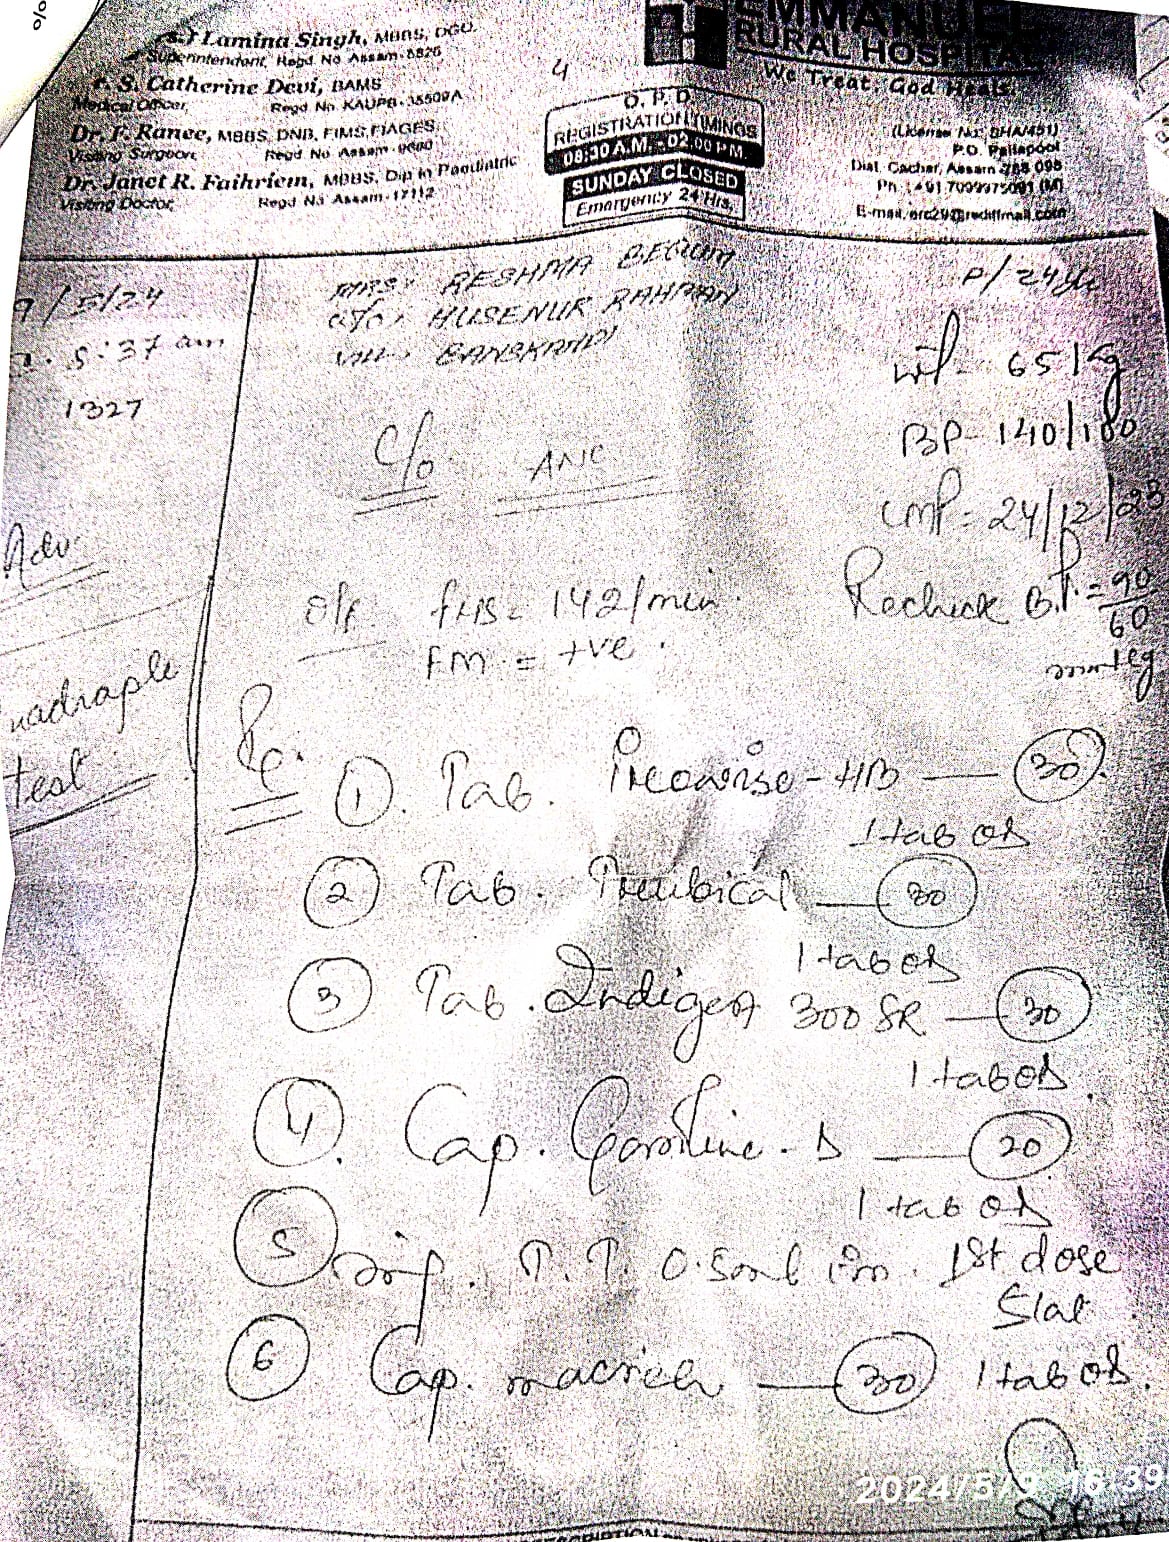 Lamina Singh, MBBS, DGO.
Superintendent, Regd. No Assam-
S. Catherine Devi, BAMS
Medical Officer, Regd. No. KAUPB-
Dr. F. Ranee, MBBS, DNB, FIMS, FIAGES,
Visiting Surgeon, Regd No Assam-
Dr. Janet R. Faihriem, MBBS, Dip in Paediatric
Visiting Doctor, Regd No Assam-17112
4
O. P. D.
REGISTRATION TIMINGS
08:30 A.M. - 02.00 P.M.
SUNDAY CLOSED
Emergency 24 Hrs.
EMMANUEL
RURAL HOSPITAL
We Treat, God Heals.
P.O. Pailapool
Dist. Cachar, Assam 788 098
E-mail.
9/5/24
8:37 am
1327
MRS. RESHMA BEGUM
HUSENUR RAHMAN
Vill. BANSKANDI
F/24yr
wt- 65kg
BP- 140/100
LMP- 24/12/23
Recheck B.P. = 90/60 mmHg
C/o ANC
Adv
Quadraple
test
O/E. FHS = 142/min.
FM = +ve.
Rx.
1. Tab. - HB — 30
1 tab OD
2 Tab. — 30
1 tab OD
3 Tab. 300 SR — 30
1 tab OD
4. Cap. - D — 20
1 tab OD
5 inj. T.T. 0.5ml im. 1st dose
Stat
6 Cap. — 30 1 tab OD.
2024/5/9 16:39